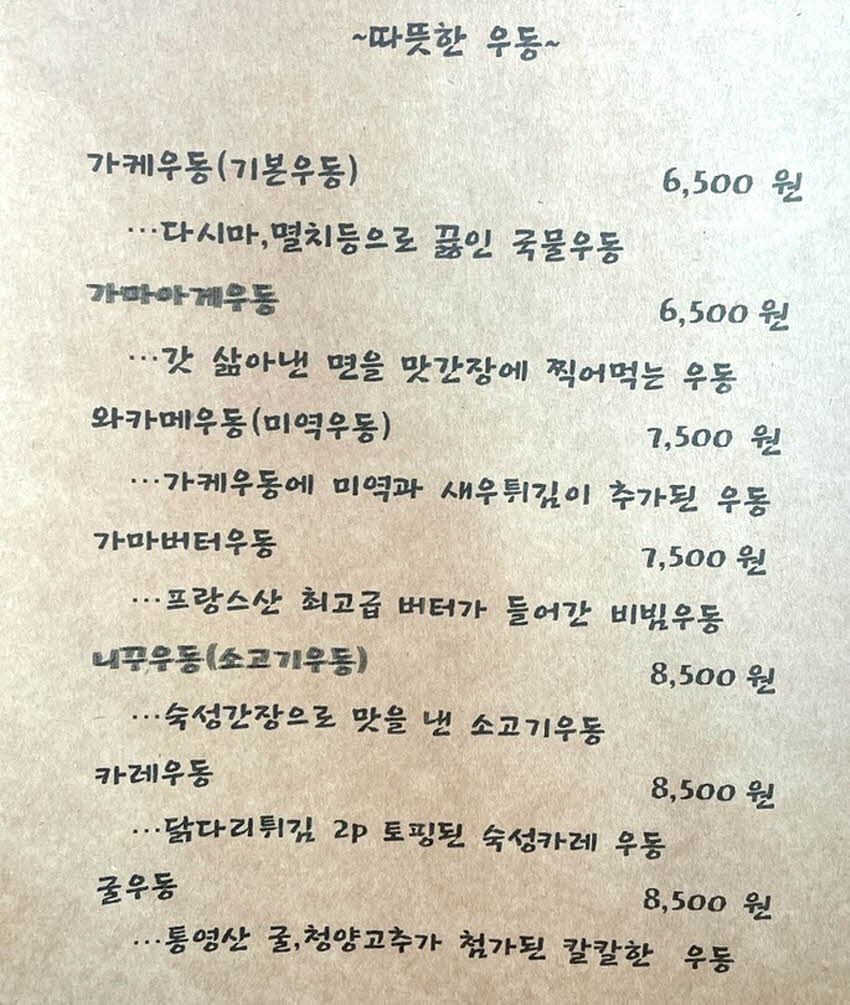 ~따뜻한 우동~
가케우동(기본우동) 6,500 원
…다시마,멸치등으로 끓인 국물우동
가마아게우동 6,500 원
…갓 삶아낸 면을 맛간장에 찍어먹는 우동
와카메우동(미역우동) 7,500 원
…가케우동에 미역과 새우튀김이 추가된 우동
가마버터우동 7,500 원
…프랑스산 최고급 버터가 들어간 비빔우동
니꾸우동(소고기우동) 8,500 원
…숙성간장으로 맛을 낸 소고기우동
카레우동 8,500 원
…닭다리튀김 2p 토핑된 숙성카레 우동
굴우동 8,500 원
…통영산 굴,청양고추가 첨가된 칼칼한 우동